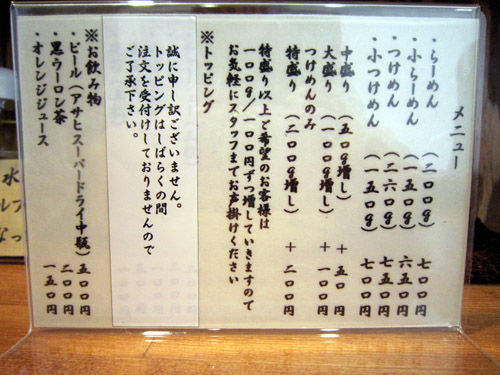 メニュー
・らーめん （二〇〇g） 七〇〇円
・小らーめん （一五〇g） 六五〇円
・つけめん （二六〇g） 七五〇円
・小つけめん （一五〇g） 七〇〇円
中盛り （五〇g増し） ＋ 五〇円
大盛り （一〇〇g増し） ＋ 一〇〇円
つけめんのみ
特盛り （二〇〇g増し） ＋ 二〇〇円
特盛り以上ご希望のお客様は
一〇〇g/一〇〇円ずつ増していきますので
お気軽にスタッフまでお声掛けください
※トッピング
誠に申し訳ございません。
トッピングはしばらくの間
注文を受付けしておりませんので
ご了承下さい。
※お飲み物
・ビール（アサヒスーパードライ中瓶） 五〇〇円
・黒ウーロン茶 二〇〇円
・オレンジジュース 一五〇円
水